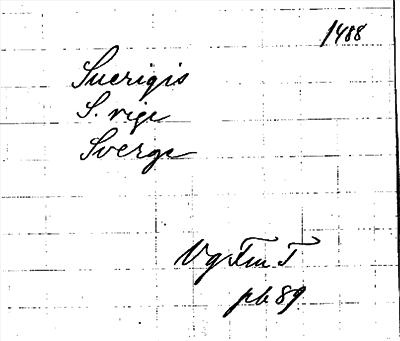 1488
Suerigis
S. rige
Sverge
Vg Fm T
pb 89